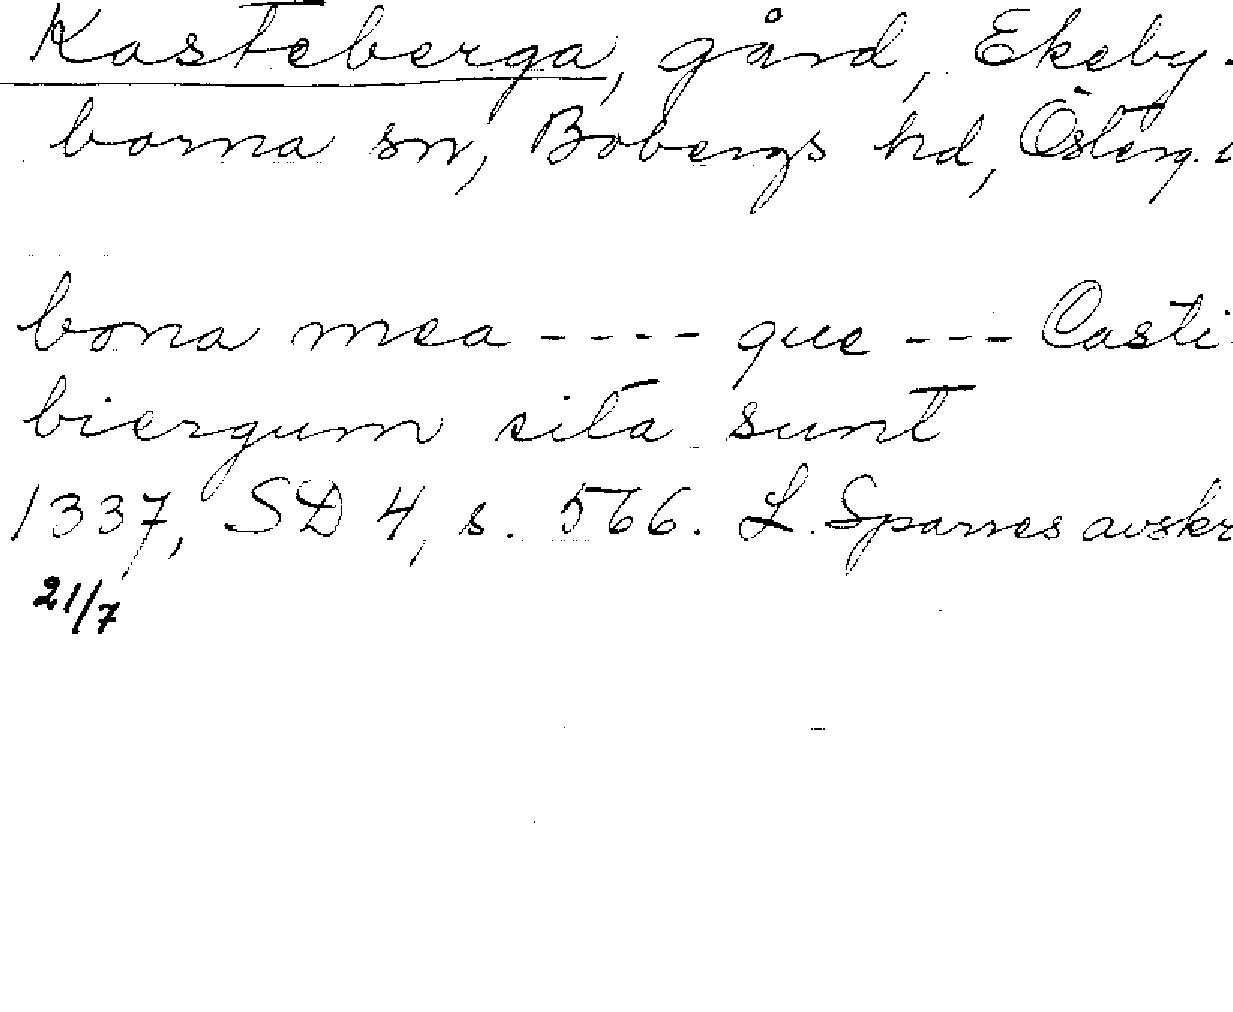 Kasteberga, gård, Ekeby-
borna sn, Bobergs hd, Österg.
bona mea ---- que --- Casti-
biergum sita sunt
1337, SD 4, s. 566. L. Sparres avskr
21/7